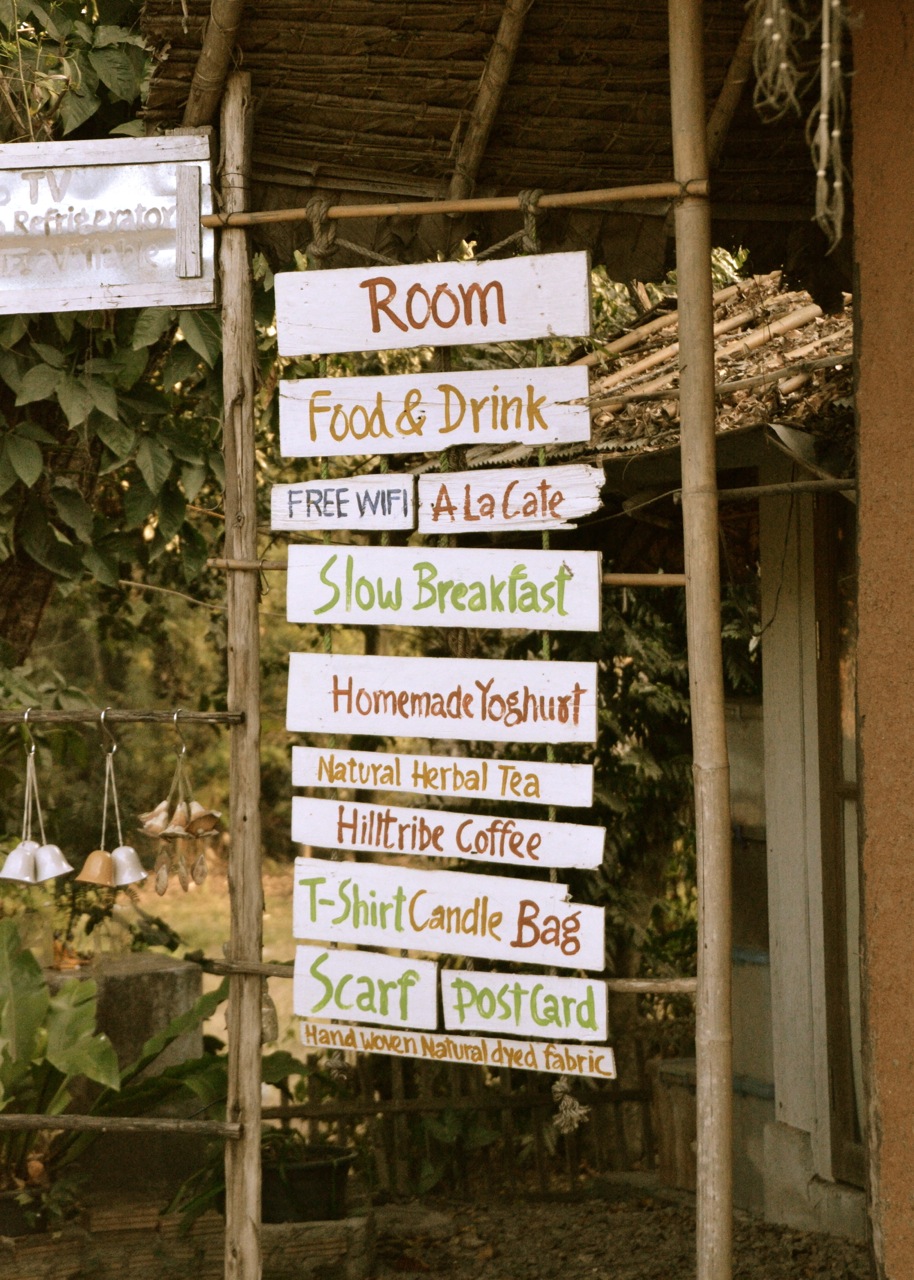 TV
Refrigerator
Room
Food & Drink
FREE WIFI
A La Cate
Slow Breakfast
Homemade Yoghurt
Natural Herbal Tea
Hilltribe Coffee
T-Shirt Candle Bag
Scarf
Postcard
Hand Woven Natural dyed fabric